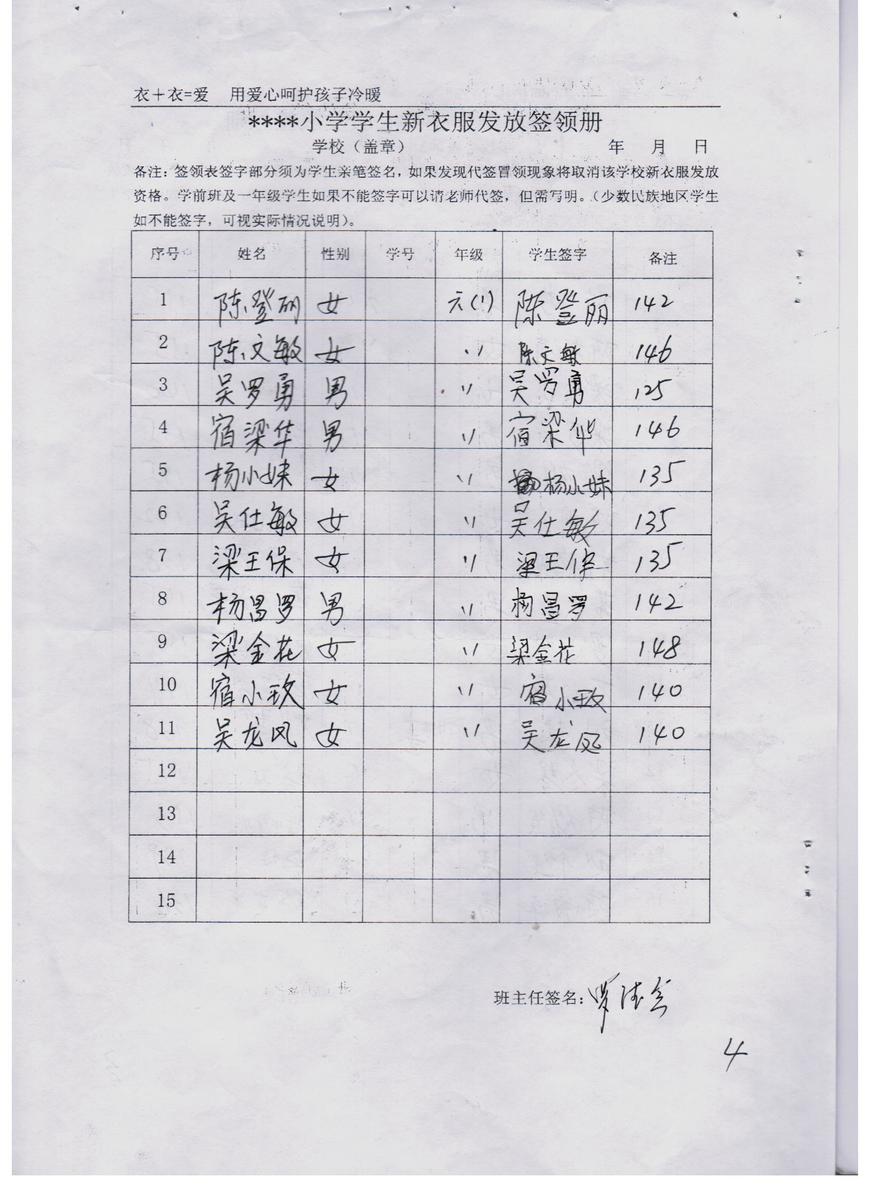 衣+衣=爱 用爱心呵护孩子冷暖
****小学学生新衣服发放签领册
学校（盖章） 年 月 日
备注：签领表签字部分须为学生亲笔签名，如果发现代签冒领现象将取消该学校新衣服发放
资格。学前班及一年级学生如果不能签字可以请老师代签，但需写明。（少数民族地区学生
如不能签字，可视实际情况说明）。
序号 姓名 性别 学号 年级 学生签字 备注
1 陈登丽 女 六(1) 陈登丽 142
2 陈文敏 女 〃 陈文敏 146
3 吴罗勇 男 〃 吴罗勇 125
4 宿梁华 男 〃 宿梁华 146
5 杨小妹 女 〃 杨小妹 135
6 吴仕敏 女 〃 吴仕敏 135
7 梁王保 女 〃 梁王保 135
8 杨昌罗 男 〃 杨昌罗 142
9 梁金花 女 〃 梁金花 148
10 宿小玫 女 〃 宿小玫 140
11 吴龙凤 女 〃 吴龙凤 140
12
13
14
15
班主任签名：
4